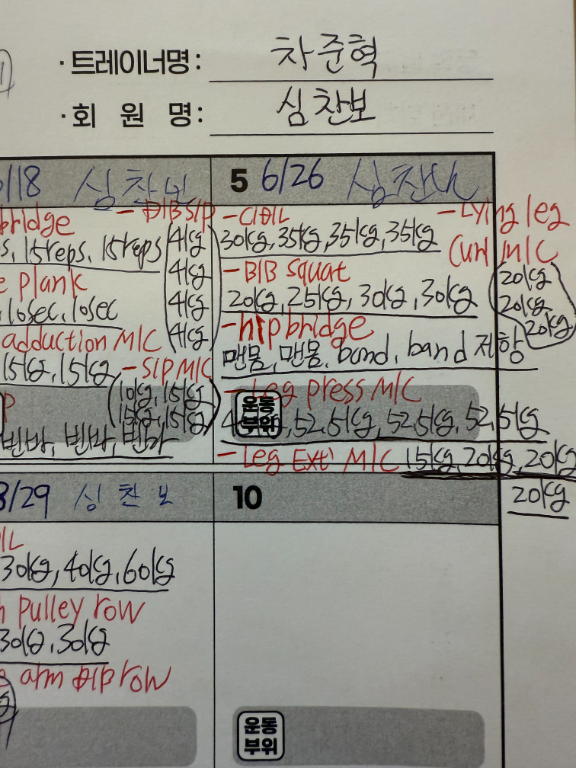 · 트레이너명 : 차준혁
· 회 원 명 : 심찬보
/18 심찬보
bridge - B/B S/P
15reps, 15reps 4kg
4kg
plank 4kg
10sec, 10sec 4kg
adduction M/C
15kg, 15kg - S/P M/C
10kg, 15kg
15kg, 15kg
빈바, 빈바, 빈바
5 6/26 심찬보
- C/D/L - Lying leg
30kg, 35kg, 35kg, 35kg Curl M/C
- B/B squat 20kg
20kg, 25kg, 30kg, 30kg 20kg
- hip bridge 20kg
맨몸, 맨몸, band, band 저항
- Leg press M/C
운동
부위
52.5kg, 52.5kg, 52.5kg
- Leg Ext' M/C 15kg, 20kg, 20kg
20kg
8/29 심찬보
30kg, 40kg, 60kg
pulley row
30kg, 30kg
arm row
10
운동
부위